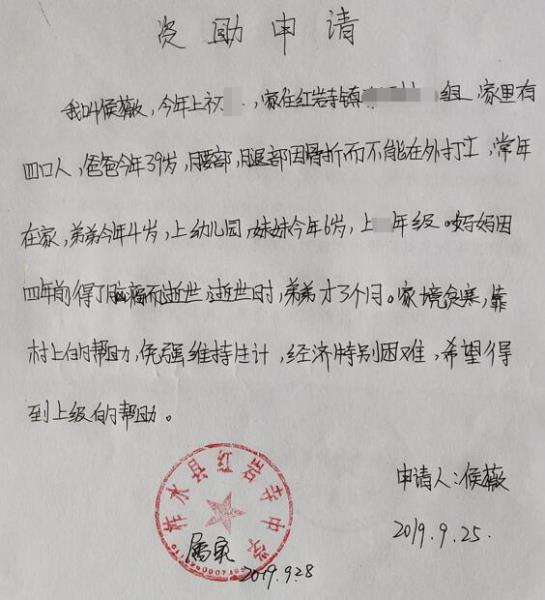 资助申请
我叫侯薇，今年上初，家住红岩寺镇组，家里有
四口人，爸爸今年39岁，腰部，腿部因骨折而不能在外打工，常年
在家，弟弟今年4岁，上幼儿园，妹妹今年6岁，上年级。妈妈因
四年前得了脑瘤而逝世，逝世时，弟弟才3个月。家境贫寒，靠
村上的帮助，免强维持生计，经济特别困难，希望得
到上级的帮助。
申请人：侯薇
2019.9.25.
柞水县红岩寺中学
属实
2019.9.28